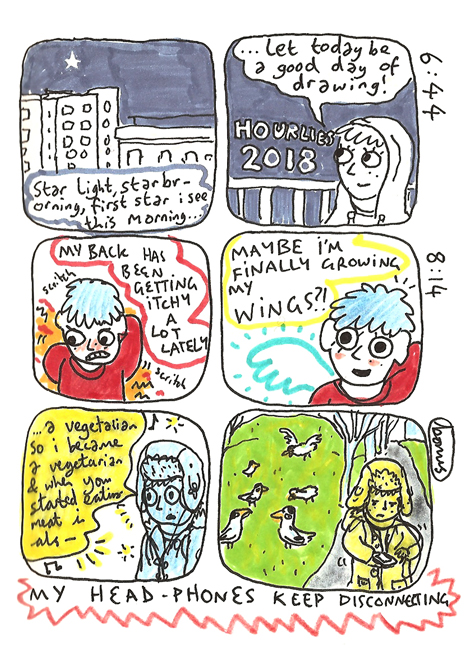 Star light, star br-
orning, first star i see
this morning...
...Let today be
a good day of
drawing!
HOURLIES
2018
6:44
MY BACK HAS
BEEN
GETTING
ITCHY
A
LOT
LATELY
scritch
scritch
MAYBE i'M
FINALLY GROWING
MY
WINGS?!
8:14
...a vegetarian
so i became
a vegetarian
& when you
started eating
meat i
als—
bonus
MY HEAD-PHONES KEEP DISCONNECTING